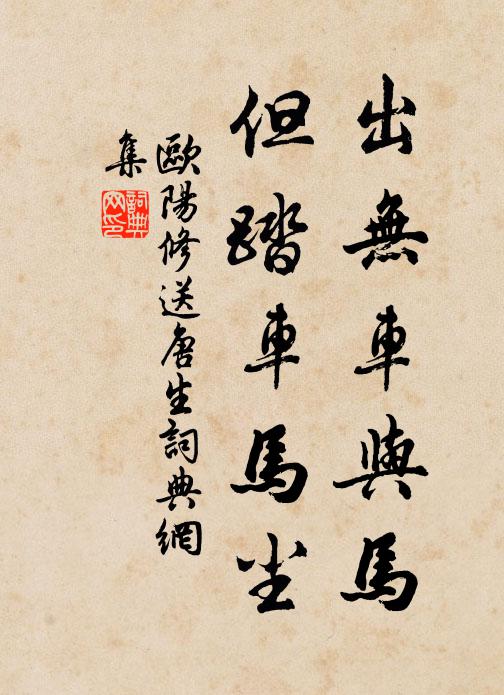 出無車與馬
但踏車馬尘
歐陽修送唐生詞典網
集
詞典网印